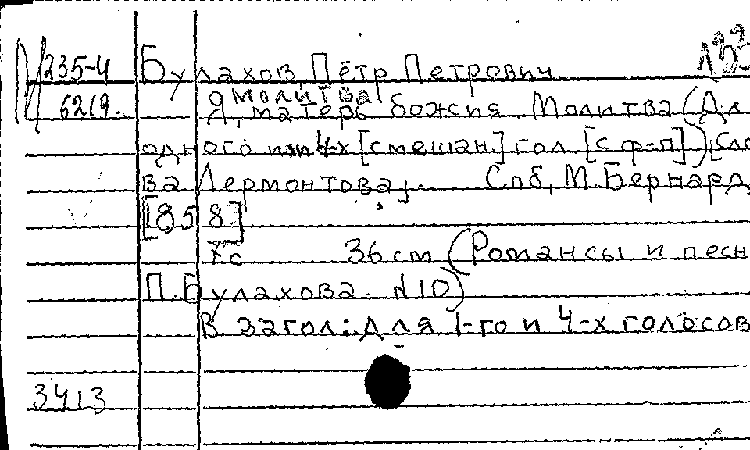 235-4 Булахов Пётр Петрович
молитва
6219. Я, матерь божия. Молитва (Дл
одного или 4-х [смешан.] гол. [с ф-п]) [Сло
ва Лермонтова]. Спб, М. Бернард
[1858]
7с 36 см (Романсы и песн
П. Булахова. N 10)
В загол: Для 1-го и 4-х голосов
3413